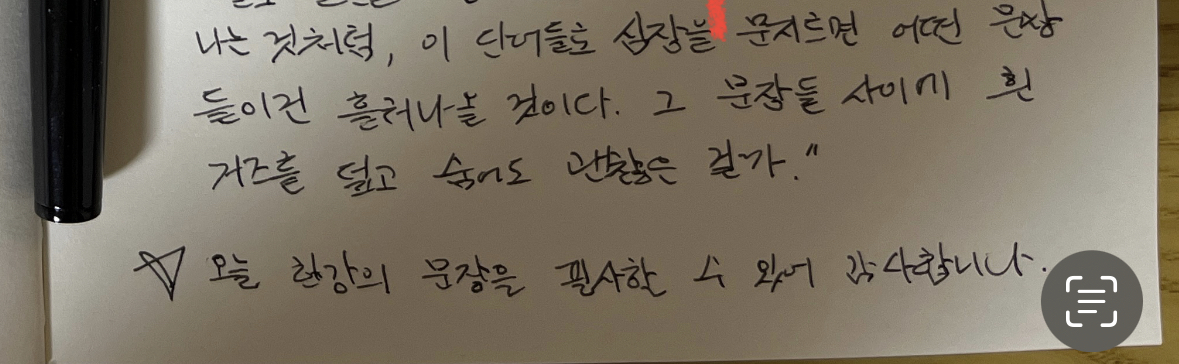 나는 것처럼, 이 단어들로 심장을 문지르면 어떤 문장
들이건 흘러나올 것이다. 그 문장들 사이에 흰
거즈를 덮고 숨어도 괜찮은 걸까."
오늘 한강의 문장을 필사할 수 있어 감사합니다.